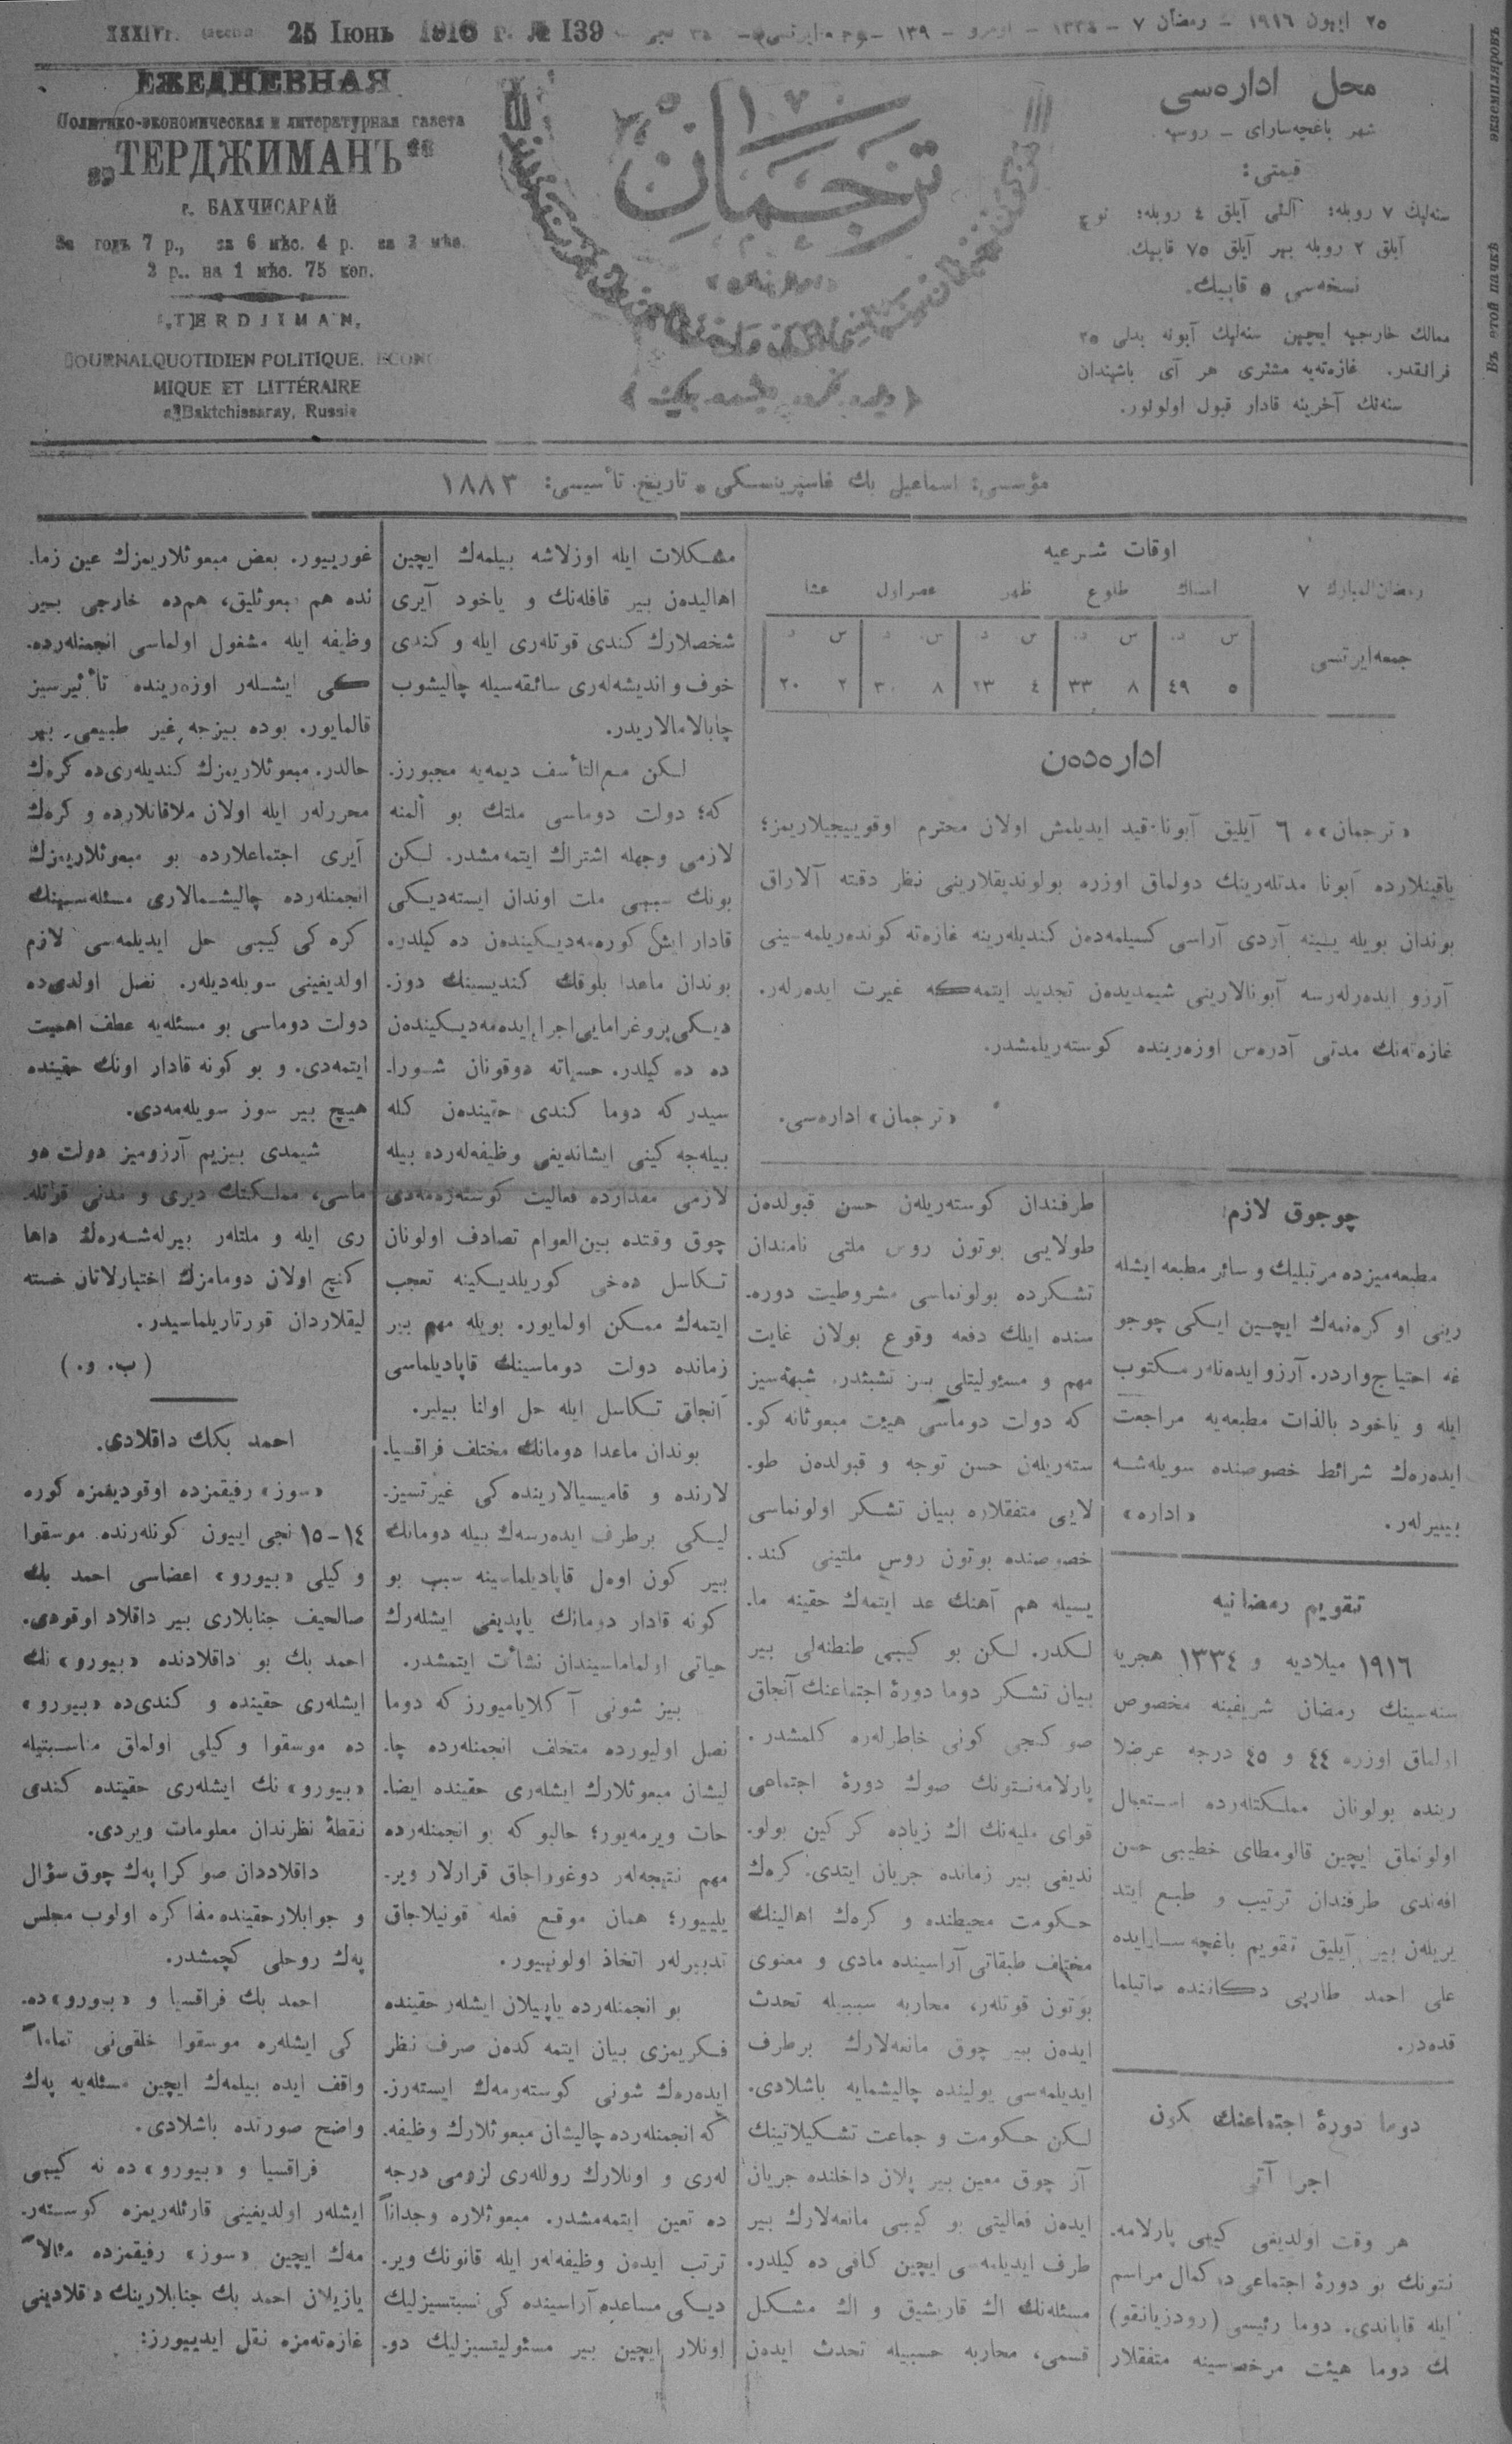 25 Іюнь 1916 г. № 139
٢٥ اییون ١٩١٦ – رمضان ٧ – ١٣٣٤ – نومرو – ١٣٩
ЕЖЕДНЕВНАЯ
Политико-экономическая и литературная газета
„ТЕРДЖИМАНЪ“
г. БАХЧИСАРАЙ
За годъ 7 р., за 6 мѣс. 4 р. за 3 мѣс.
2 р., на 1 мѣс. 75 коп.
„TERDJIMAN„
JOURNAL QUOTIDIEN POLITIQUE. ECONO
MIQUE ET LITTÉRAIRE
a Baktchissaray, Russie
ترجمان
محل اداره‌سی
شهر باغچه‌سارای – روسیه
قیمتی:
سنه‌لیك ٧ روبله؛ آلتی آیلق ٤ روبله؛
آیلق ٢ روبله بیر آیلق ٧٥ قاپیك.
نسخه‌سی ٥ قاپیك.
ممالك خارجیه ایچین سنه‌لیك آبونه بدلی ٢٥
فرانقدر. غازه‌ته‌یه مشتری هر آی باشیندان
سنه‌نك آخرینه قادار قبول اولونور.
экземпляровъ
Въ этой пачкѣ
مؤسسی: اسماعیل بك غاسپرینسكی ٭ تاریخ تأسیسی: ١٨٨٣
اوقات شرعیه
رمضان المبارك ٧
امساك طلوع ظهر عصر اول عشا
جمعه ایرتسی
س د. س د. س د س. د س د
٥ ٤٩ ٨ ٣٣ ٤ ٢٣ ٨ ٣٠ ٢ ٢٠
اداره‌دن
«ترجمان»ه ٦ آیلیق آبونا قید ایدیلمش اولان محترم اوقوییجیلاریمز؛
یاقینلارده آبونا مدتلەرینك دولماق اوزره بولوندیقلارینی نظر دقته آلاراق
بوندان بویله یینه آردی آراسی كسیلمه‌دن كندیلەرینه غازه‌ته كونده‌ریلمه‌سینی
آرزو ایدەرلەرسه آبونالارینی شیمدیدن تجدید ایتمه‌كه غیرت ایدەرلەر.
غازه‌ته‌نك مدتی آدرەس اوزەرینده كوستەریلمشدر.
«ترجمان» اداره‌سی.
چوجوق لازم
مطبعه‌میزده مرتبلیك و سائر مطبعه ایشله
رینی اوكرەنمەك ایچین ایكی چوجو
غه احتیاج واردر. آرزو ایدەنلەر مكتوب
ایله و یاخود بالذات مطبعه‌یه مراجعت
ایدەرەك شرائط خصوصنده سویله‌شه
بیلیرلەر. «اداره»
تقویم رمضانیه
١٩١٦ میلادیه و ١٣٣٤ هجریه
سنه‌سینك رمضان شریفینه مخصوص
اولماق اوزره ٤٤ و ٤٥ درجه عرضلا
رینده بولونان مملكتلەرده استعمال
اولونماق ایچین قالومطای خطیبی حسن
افەندی طرفندان ترتیب و طبع ایتد
یریلەن بیر آیلیق تقویم باغچه‌سارایده
علی احمد طارپی دكاننده صاتیلما
قدەدر.
دوما دورهٔ اجتماعنك بكون
اجرا آتی
هر وقت اولدیغی كیبی پارلامه‌
نتونك بو دورهٔ اجتماعی ده كمال مراسم
ایله قاپاندی. دوما رئیسی (رودزیانقو)
ك دوما هیئت مرخصه‌سینه متفقلار
طرفندان كوستەریلەن حسن قبولدەن
طولایی بوتون روس ملتی نامندان
تشكرده بولونماسی مشروطیت دوره‌
سنده ایلك دفعه وقوع بولان غایت
مهم و مسئولیتلی بیر تشبثدر. شبهه‌سیز
كه دولت دوماسی هیئت مبعوثانه كو.
ستەریلەن حسن توجه و قبولدەن طو.
لایی متفقلاره بیان تشكر اولونماسی
خصوصنده بوتون روس ملتینی كند.
یسیله هم آهنك عد ایتمەك حقینه ما.
لكدر. لكن بو كیبی طنطنه‌لی بیر
بیان تشكر دوما دورهٔ اجتماعنك آنجاق
صوكنجی كونی خاطرلەره كلمشدر.
پارلامه‌نتونك صوك دورهٔ اجتماعی
قوای ملیه‌نك اك زیاده كركین بولو.
ندیغی بیر زمانده جریان ایتدی. كرەك
حكومت محیطنده و كرەك اهالینك
مختلف طبقاتی آراسینده مادی و معنوی
بوتون قوتلەر، محاربه سببیله تحدث
ایدەن بیر چوق مانعه‌لارك برطرف
ایدیلمه‌سی یولینده چالیشمایه باشلادی.
لكن حكومت و جماعت تشكیلاتینك
آز چوق معین بیر پلان داخلنده جریان
ایدەن فعالیتی بو كیبی مانعه‌لارك بیر
طرف ایدیلمه‌سی ایچین كافی ده كیلدر.
مسئله‌نك اك قاریشیق و اك مشكل
قسمی، محاربه حسبیله تحدث ایدەن
مشكلات ایله اوزلاشه بیلمەك ایچین
اهالیدەن بیر قافله‌نك و یاخود آیری
شخصلارك كندی قوتلەری ایله و كندی
خوف و اندیشه‌لەری سائقه‌سیله چالیشوب
چابالامالاریدر.
لكن مع‌التأسف دیمه‌یه مجبورز.
كه؛ دولت دوماسی ملتك بو المنه
لازمی وجهله اشتراك ایتمه‌مشدر. لكن
بونك سببی ملت اوندان ایسته‌دیكی
قادار ایش كورەمه‌دیكیندەن ده كیلدر.
بوندان ماعدا بلوقك كندیسینك دوز.
دیكی پروغرامایی اجرا ایدەمه‌دیكیندەن
ده ده كیلدر. حسیاته دوقونان شورا.
سیدر كه دوما كندی حقیندەن كله
بیله‌جه كینی ایشانه‌یغی وظیفه‌لەرده بیله
لازمی مقدارده فعالیت كوستەرەمه‌دی
چوق وقتده بین‌العوام تصادف اولونان
تكاسل دەخی كوریلدیكینه تعجب
ایتمەك ممكن اولمایور. بویله مهم بیر
زمانده دولت دوماسینك قاپادیلماسی
آنجاق تكاسل ایله حل اولنا بیلیر.
بوندان ماعدا دومانك مختلف فراقسیا.
لارنده و قامیسیالارینده كی غیرتسیز.
لیكی برطرف ایدەرسەك بیله دومانك
بیر كون اوەل قاپادیلماسینه سبب بو
كونه قادار دومانك یاپدیغی ایشلەرك
حیاتی اولماماسیندان نشأت ایتمشدر.
بیز شونی آكلایامیورز كه دوما
نصل اولیورده متخلف انجمنلەرده چا.
لیشان مبعوثلارك ایشلەری حقینده ایضا.
حات ویرمه‌یور؛ حالبو كه بو انجمنلەرده
مهم نتیجه‌لەر دوغوراجاق قرارلار ویر.
یلییور؛ همان موقع فعله قونیلاجاق
تدبیرلەر اتخاذ اولونییور.
بو انجمنلەرده یاپیلان ایشلەر حقینده
فكریمزی بیان ایتمه كدەن صرف نظر
ایدەرەك شونی كوستەرمەك ایستەرز.
كه انجمنلەرده چالیشان مبعوثلارك وظیفه.
لەری و اونلارك روللەری لزومی درجه
ده تعین ایتمه‌مشدر. مبعوثلاره وجداناً
ترتب ایدەن وظیفه‌لەر ایله قانونك ویر.
دیكی مساعده آراسینده كی نسبتسیزلیك
اونلار ایچین بیر مسئولیتسیزلیك دو.
غورییور. بعض مبعوثلاریمزك عین زما.
نده هم مبعوثلیق، هم‌ده خارجی بیر
وظیفه ایله مشغول اولماسی انجمنلەرده.
كی ایشلەر اوزەرینده تأثیرسیز
قالمایور. بوده بیزجه غیر طبیعی بیر
حالدر. مبعوثلاریمزك كندیلەری ده كرەك
محررلەر ایله اولان ملاقاتلارده و كرەك
آیری اجتماعلارده بو مبعوثلاریمزك
انجمنلەرده چالیشمالاری مسئله‌سینك
كره كی كیبی حل ایدیلمه‌سی لازم
اولدیغینی سویله‌دیلەر. نصل اولدی ده
دولت دوماسی بو مسئله‌یه عطف اهمیت
ایتمه‌دی. و بو كونه قادار اونك حقینده
هیچ بیر سوز سویله‌مه‌دی.
شیمدی بیزیم آرزومیز دولت دو
ماسی، مملكتك دیری و مدنی قوتله
ری ایله و ملتلەر بیرله‌شەرەك داها
كنج اولان دومامزك اختیارلاتان خسته
لیقلاردان قورتاریلماسیدر.
(ب. و.)
احمد بكك داقلادی.
«سوز» رفیقمزده اوقودیغمزه كوره
١٤-١٥ نجی ایییون كونلەرنده موسقوا
وكیلی «بیورو» اعضاسی احمد بك
صالحیف جنابلاری بیر داقلاد اوقودی.
احمد بك بو داقلادنده «بیورو» نك
ایشلەری حقینده و كندی ده «بیورو»
ده موسقوا وكیلی اولماق مناسبتیله
«بیورو» نك ایشلەری حقینده كندی
نقطهٔ نظرندان معلومات ویردی.
داقلاددان صوكرا پەك چوق سؤال
و جوابلار حقینده مذاكره اولوب مجلس
پەك روحلی كچمشدر.
احمد بك فراقسیا و «بیورو» ده.
كی ایشلەره موسقوا خلقی‌نی تماماً
واقف ایده بیلمەك ایچین مسئله‌یه پەك
واضح صورتده باشلادی.
فراقسیا و «بیورو» ده نه كیبی
ایشلەر اولدیغینی قارئلەریمزه كوستەر.
مەك ایچین «سوز» رفیقمزده مثالاً
یازیلان احمد بك جنابلارینك داقلادینی
غازه‌ته‌مزه نقل ایدییورز: